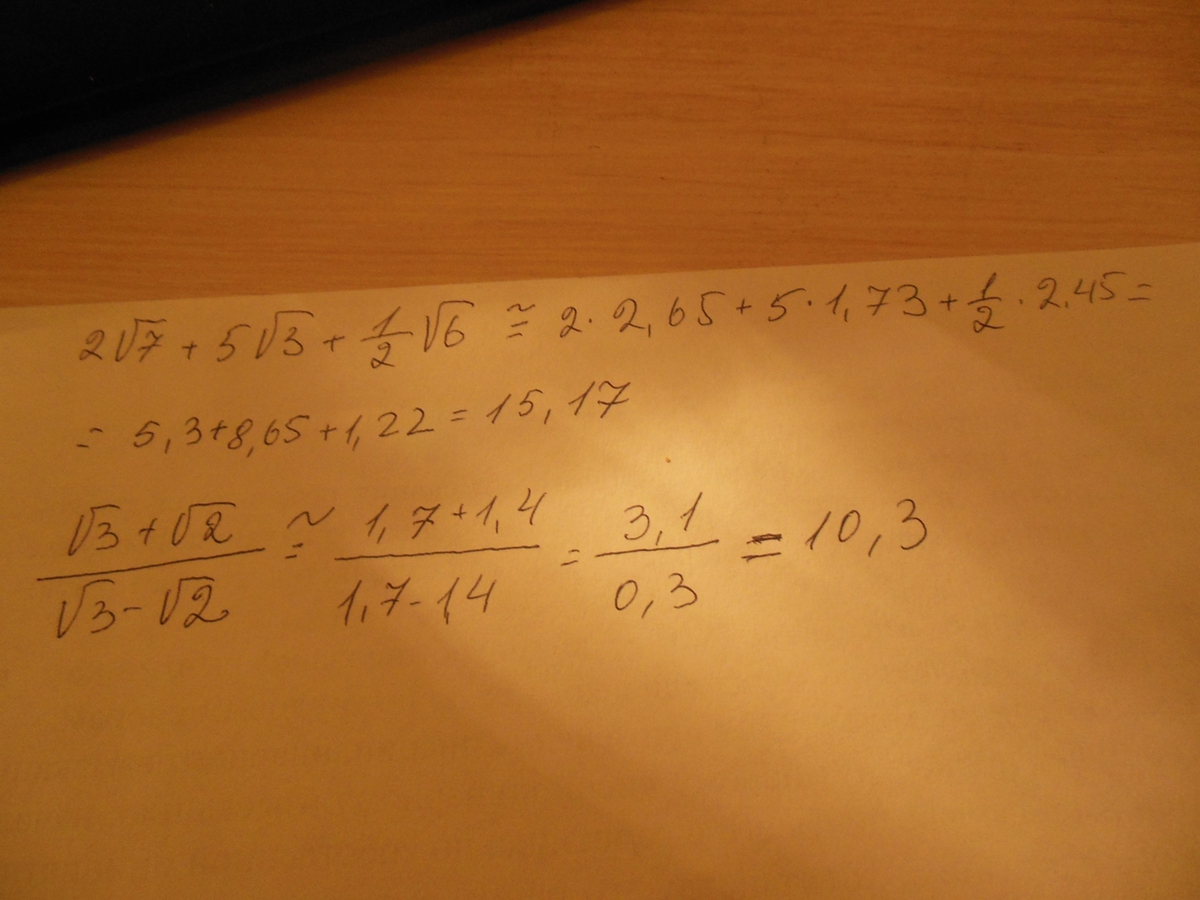 2√7 + 5√3 + 1/2 √6 ≅ 2 · 2,65 + 5 · 1,73 + 1/2 · 2,45 =
= 5,3 + 8,65 + 1,22 = 15,17
(√3 + √2)/(√3 - √2) ≅ (1,7 + 1,4)/(1,7 - 1,4) = 3,1/0,3 = 10,3